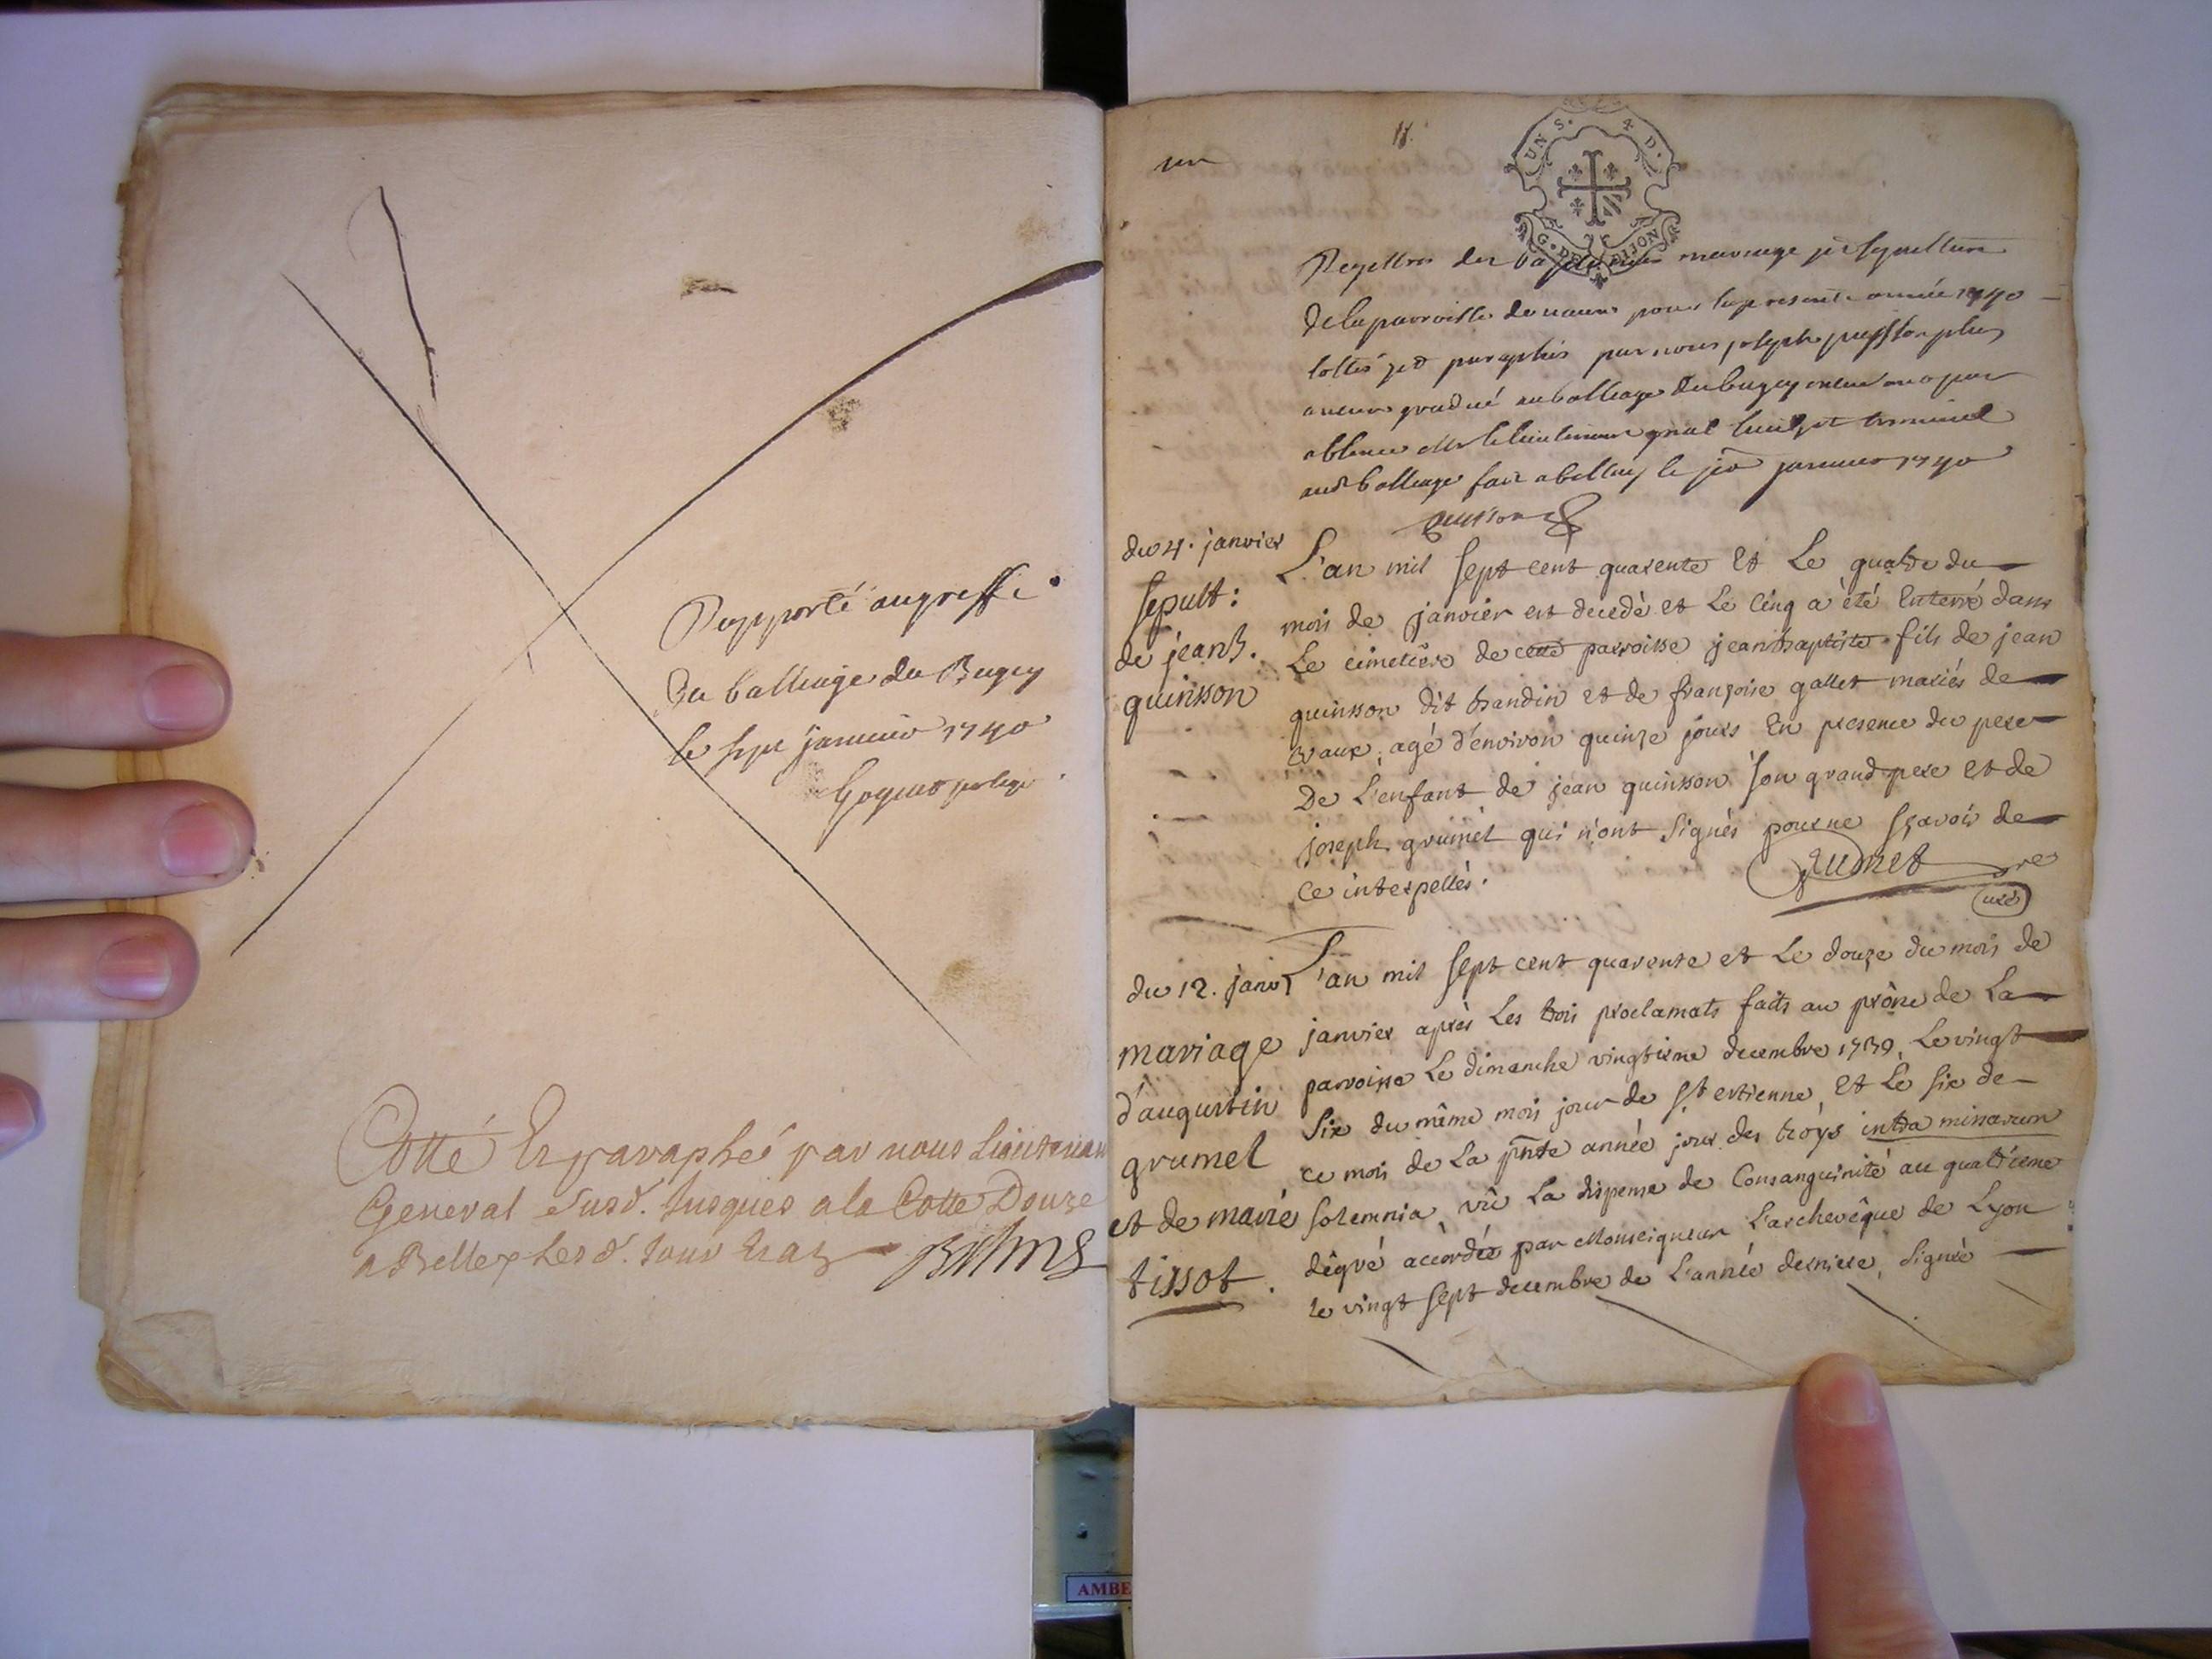 Rapporté au greffe
Du balliage du Bugey
le sept janvier 1740
Cotté Et paraphé par nous Lieutenan
General Susd. Jusques a la Cotte Douze
a Belley Les d. jour Et an
un
UN S. 4 D.
G. DE DIJON
Registre des baptemes mariage et sepulture
de la parroisse de vaux pour la presente année 1740
cottés et paraphés par nous joseph
ancien gradué au balliage du bugey
absence de Mr le lieutenant gnal civil et criminel
aud balliage fait a belley le janvier 1740
du 4. janvier
sepult:
de jean B.
quinson
L'an mil sept cent quarente Et Le quatre du
mois de janvier est decedé et Le cinq a été Enterré dans
Le cimetière de cette parroisse jean baptiste fils de jean
quinson dit bandin et de françoise gallet mariés de
vaux, agé d'environ quinze jours En presence du pere
De L'enfant de jean quinson son grand pere et de
joseph grumel qui n'ont signés pour ne sçavoir de
ce interpellés.
curé
du 12. janvr
mariage
d'augustin
grumel
et de marie
tissot.
L'an mil sept cent quarente et Le douze du mois de
janvier après Les trois proclamats faits au prône de La
parroisse Le dimanche vingtieme decembre 1739, Le vingt
six du même mois jour de st estienne, Et Le six de
ce mois de La pnte année jour des roys intra missarum
solemnia, vû La dispense de Consanguinité au quatrieme
dégré accordée par Monseigneur L'archevêque de Lyon
le vingt sept decembre de L'année derniere, signée
AMBE